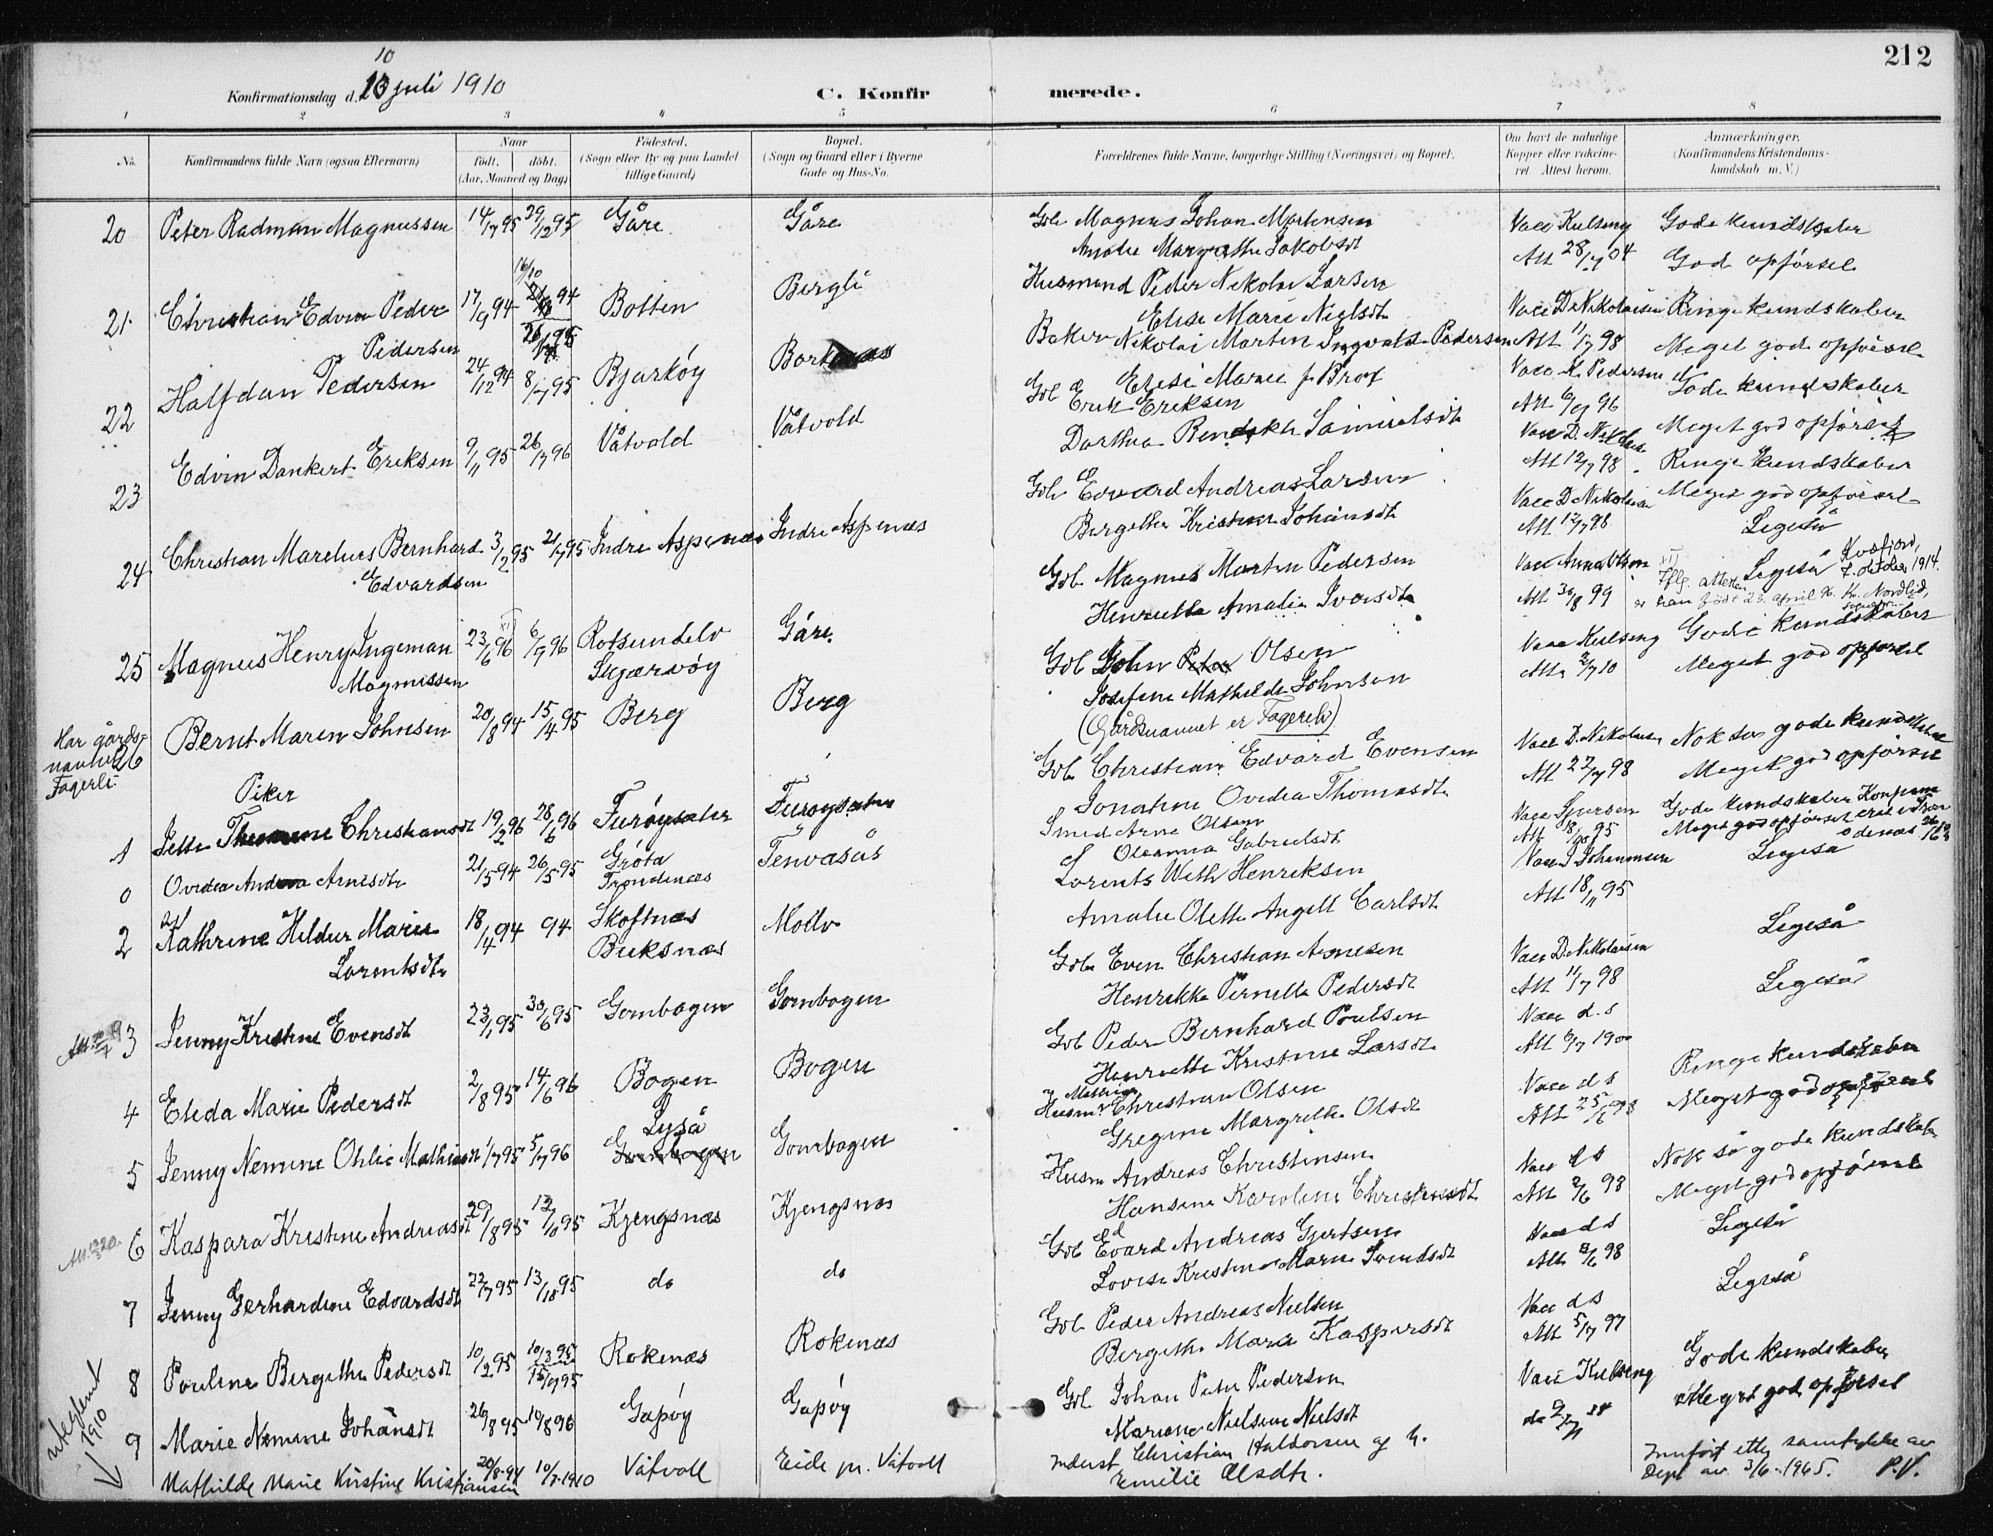 212
10
Konfirmationsdag d. 10 juli 1910
C. Konfirmerede.
1 2 3 4 5 6 7 8
No. Konfirmandens fulde Navn (ogsaa Efternavn) Naar født. døbt. (Aar, Maaned og Dag) Fødested. (Sogn eller By og paa Landet tillige Gaard) Bopæl. (Sogn og Gaard eller i Byerne Gade og Hus-No. Forældrenes fulde Navne, borgerlige Stilling (Næringsvei) og Bopæl. Om havt de naturlige Kopper eller vaksineret. Attest herom. Anmærkninger. (Konfirmandens Kristendomskundskab m. V.)
20 Peter Radman Magnussen 14/7 95 29/12 95 Gåre Gåre Gbr Magnus Johan Martensen Vacc Kulseng Gode kundskaber
Amalie Margrethe Jakobsdt Att 28/7 04 God opførsel
21 Christian Edvin Peder 17/9 94 16/10 94 Botten Bergli Husmand Peder Nikolai Larsen Vacc D. Nikolaisen Ringe kundskaber
Pedersen Elise Marie Nielsdt Att 11/7 98 Meget god opførsel
22 Halfdan Pedersen 24/12 94 8/7 95 Bjarkøy Borkenæs Baker Nikolai Martin Ingvald Pedersen Vacc K. Pedersen Gode kundskaber
Elise Marie f. Brox Att 6/9 96 Meget god opførsel
23 Edvin Dankert Eriksen 9/11 95 26/7 96 Våtvold Våtvold Gbr Erik Eriksen Vacc D. Nikolaisen Ringe kundskaber
Dorthea Samuelsdt Att 12/7 98 Meget god opførsel
24 Christian Marelius Bernhard 3/2 95 21/7 95 Indre Aspenæs Indre Aspenæs Gbr Edvard Andreas Larsen Vacc D. Nikolaisen Ligeså
Edvardsen Bergithe Kristine Johansdt Att 12/7 98
25 Magnus Henry Ingeman 23/6 96 6/9 96 Rotsundelv Gåre Gbr Magnus Morten Pedersen Vacc Anna Olsen Ligeså
Magnussen Skjærvøy Henrietta Amalia Ivarsdt Att 30/8 99 Iflg. attesten er han født 23. april 96. Kvæfjord, 7. oktober 1914. K. Nordlid,
26 Bernt Maren Johnsen 20/8 94 15/4 95 Berg Berg Gbr John Peter Olsen Vacc Kulseng Gode kundskaber
Har gårdsnavnet Fagerli Josefine Mathilde Johnsen Att 2/7 10 Meget god opførsel
(Gårdsnavnet er Fagereli)
Piker
1 Jette Christiansdt 19/2 96 28/6 96 Furøysæter Furøysæter Gbr Christian Edvard Evensen Vacc D. Nikolaisen Nok så gode kundskaber
Jonatine Ovedia Thomasdt Att 22/7 98 Meget god opførsel
0 Ovedia Andrea Arnesdt 21/5 94 26/5 95 Grøtø Tenvasås Smed Arne Olsen Vacc Gode kundskaber
Trondenæs Oleanna Gabrielsdt Att 95 Meget god opførsel
2 Kathrine Hildur Marie 18/4 94 94 Skoftnæs Moelv Lorents Weth Henriksen Vacc J Johannesen Ligeså
Lorentsdt Buksnæs Amalie Olette Angell Carlsdt Att 18/11 95
3 Jenny Kristine Evensdt 23/1 95 30/6 95 Gombogen Gombogen Gbr Even Christian Arnesen Vacc D. Nikolaisen Ligeså
Henrikka Pernella Pedersdt Att 11/7 98
4 Eleda Marie Pedersdt 2/8 95 14/6 96 Bogen Bogen Gbr Peder Bernhard Poulsen Vacc d.s Ligeså
Henriette Kristine Larsdt Att 6/7 1900
5 Jenny Nemine Ohlie Mathiasdt 1/7 95 5/7 96 Lyså Gombogen Husm Mathias Christian Olsen Vacc d s Ringe kundskaber
Gombogen Gregine Margrethe Olsdt Att 25/6 98 Meget god opførsel
6 Kaspara Kristine Andreasdt 29/8 95 13/10 95 Kjengsnæs Kjengsnæs Husm Andreas Christensen Vacc d s Nok så gode kundskaber
Hansine Karoline Christensdt Att 2/6 98 Meget god opførsel
7 Jenny Gerhardine Edvardsdt 22/7 95 13/10 95 do do Gbr Edvard Andreas Gjertsen Vacc d s Ligeså
Lovise Kristine Marie Svendsdt Att 2/6 98
8 Pouline Bergithe Pedersdt 10/2 95 10/3 95 Rokenæs Rokenæs Gbr Peder Andreas Nielsen Vacc d s Ligeså
Bergithe Marie Kaspersdt Att 5/7 97
9 Marie Nemine Johansdt 26/8 95 19/8 96 Gapøy Gapøy Gbr Johan Peter Pedersen Vacc Kulseng Gode kundskaber
Mariane Nielsine Nielsdt Meget god opførsel
uteglemt 1910
Mathilde Marie Kristine Kristiansen 20/8-94 10/7-1910 Våtvoll Eide pr. Våtvoll Inderst Christian Haldorsen og h. Innført etter samtykke av
Emilie Olsdtr. Dept av 3/6-1965. P.V.